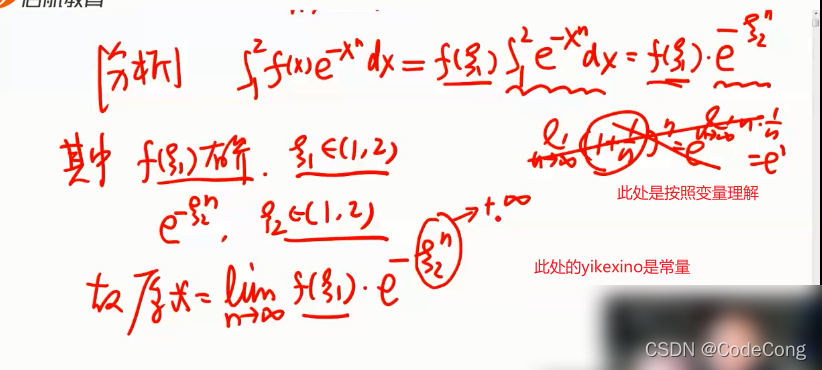 启航教育
[分析] ∫₁² f(x)e^{-xⁿ}dx = f(ξ₁)∫₁² e^{-xⁿ}dx = f(ξ₁)·e^{-ξ₂ⁿ}
其中 f(ξ₁)有界. ξ₁∈(1,2)
e^{-ξ₂ⁿ}, ξ₂∈(1,2) → +∞
故原式 = lim_{n→∞} f(ξ₁)·e^{-ξ₂ⁿ}
此处是按照变量理解
此处的yikexino是常量
CSDN @CodeCong